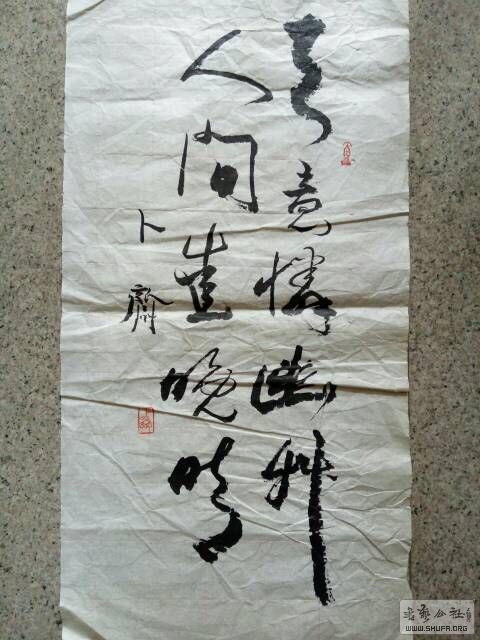 天意憐幽草
人間重晚晴
卜齋
書藝公社
WWW.SHUFA.ORG